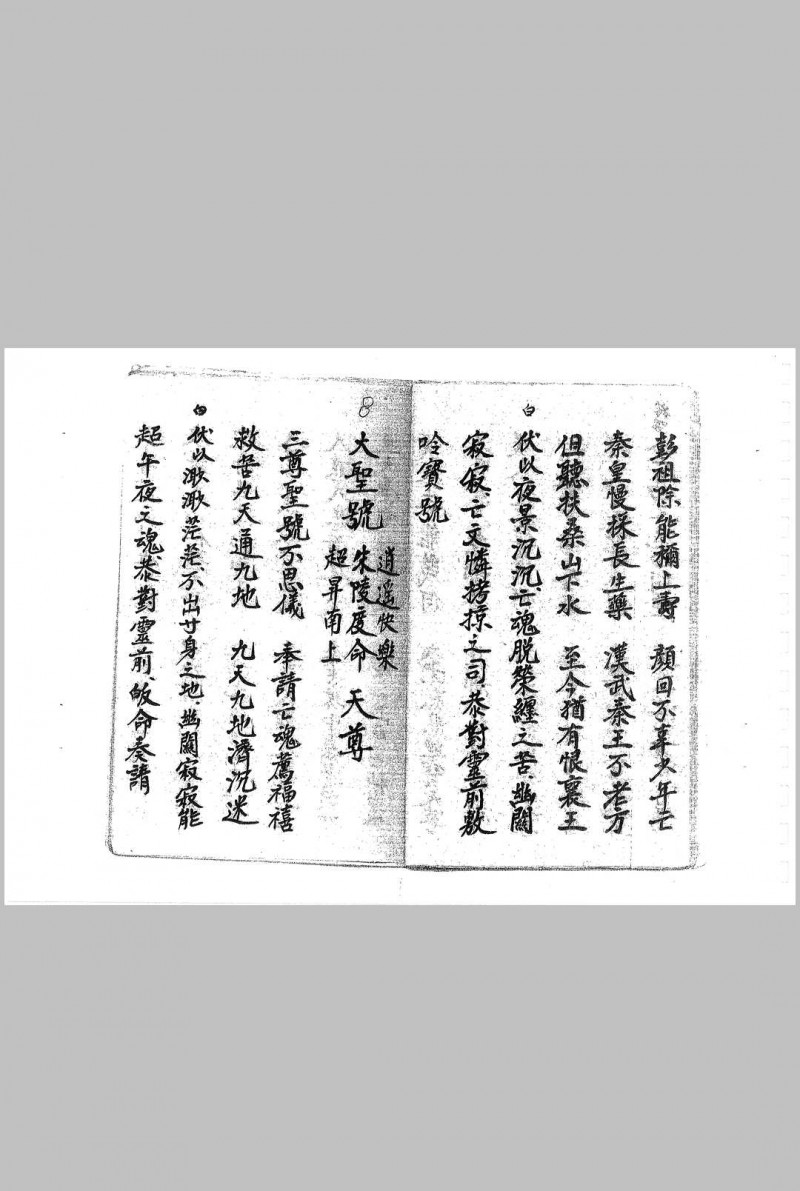 彭祖除能彌上壽　顏回不幸少年亡
秦皇慢採長生藥　漢武秦王不老方
但聽扶桑山下水　至今猶有恨襄王
白
伏以夜景沉沉、亡魂脫縈纏之苦、幽關
寂寂、亡文憐拷掠之司、恭對靈前敷
吟寶號
8
大聖號
逍遥快樂
朱陵度命
超昇南上
天尊
三尊聖號不思儀　奉請亡魂薦福禧
救苦九天通九地　九天九地濟沉迷
白
伏以渺渺茫茫、不出廿身之地、幽關寂寂能
超午夜之魂、恭對靈前、皈命奏請